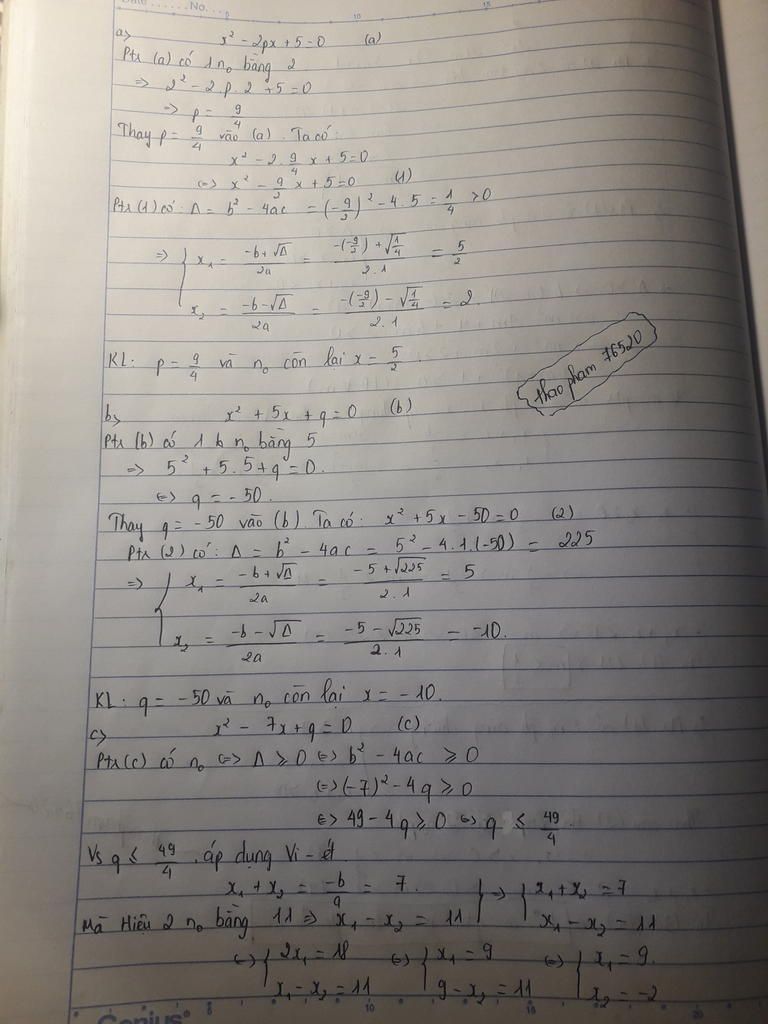 Date ...... No....
a> x² - 2px + 5 = 0 (a)
Ptr (a) có 1 n₀ bằng 2
=> 2² - 2.p.2 + 5 = 0
=> p = 9/4
Thay p = 9/4 vào (a). Ta có:
x² - 2. 9/4 x + 5 = 0
<=> x² - 9/2 x + 5 = 0 (1)
Ptr (1) có: Δ = b² - 4ac = (-9/2)² - 4.5 = 1/4 > 0
=> { x₁ = (-b + √Δ)/2a = (-(-9/2) + √(1/4))/2.1 = 5/2
x₂ = (-b - √Δ)/2a = (-(-9/2) - √(1/4))/2.1 = 2.
KL: p = 9/4 và n₀ còn lại x = 5/2
thao pham 76520
b> x² + 5x + q = 0 (b)
Ptr (b) có 1 n₀ bằng 5
=> 5² + 5.5 + q = 0.
<=> q = -50.
Thay q = -50 vào (b). Ta có: x² + 5x - 50 = 0 (2)
Ptr (2) có: Δ = b² - 4ac = 5² - 4.1.(-50) = 225
=> { x₁ = (-b + √Δ)/2a = (-5 + √225)/2.1 = 5
x₂ = (-b - √Δ)/2a = (-5 - √225)/2.1 = -10.
KL: q = -50 và n₀ còn lại x = -10.
c> x² - 7x + q = 0 (c)
Ptr (c) có n₀ <=> Δ ≥ 0 <=> b² - 4ac ≥ 0
<=> (-7)² - 4q ≥ 0
<=> 49 - 4q ≥ 0 <=> q ≤ 49/4.
Vs q ≤ 49/4. áp dụng Vi-ét.
x₁ + x₂ = -b/a = 7. } => { x₁ + x₂ = 7
Mà Hiệu 2 n₀ bằng 11 => x₁ - x₂ = 11 x₁ - x₂ = 11
<=> { 2x₁ = 18 <=> { x₁ = 9 <=> { x₁ = 9.
x₁ - x₂ = 11 9 - x₂ = 11 x₂ = -2
Genius